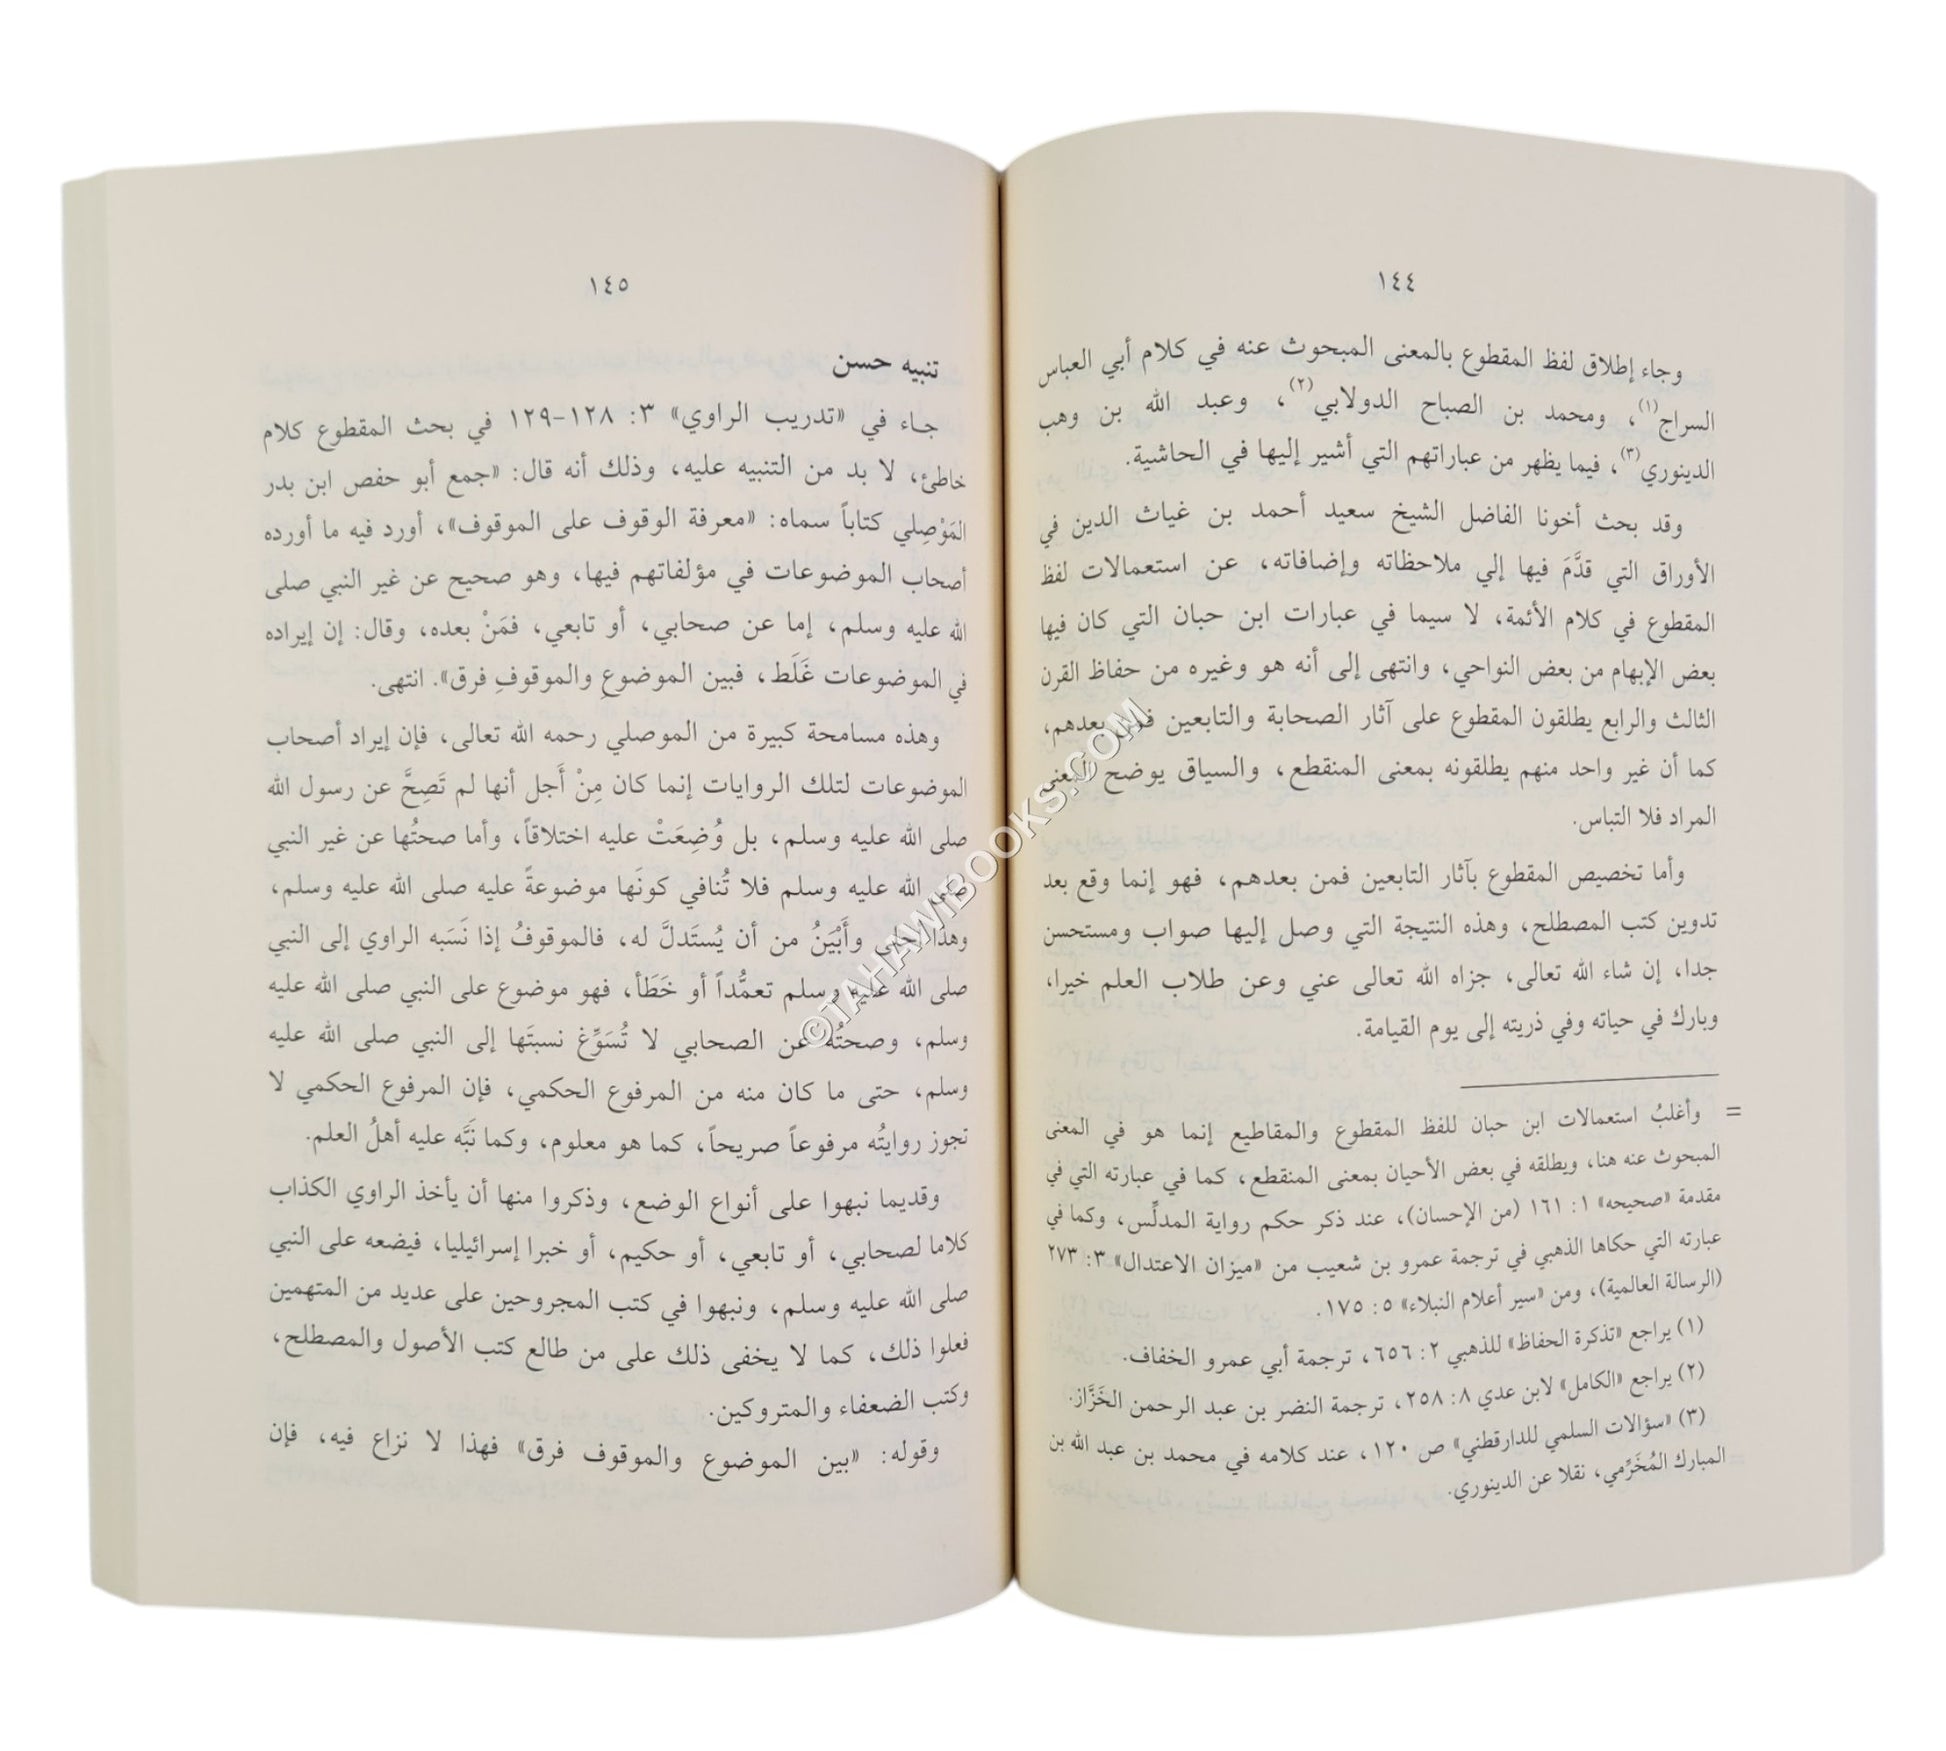 ١٤٤
وجاء إطلاق لفظ المقطوع بالمعنى المبحوث عنه في كلام أبي العباس
السراج(١)، ومحمد بن الصباح الدولابي(٢)، وعبد الله بن وهب
الدينوري(٣)، فيما يظهر من عباراتهم التي أشير إليها في الحاشية.
وقد بحث أخونا الفاضل الشيخ سعيد أحمد بن غياث الدين في
الأوراق التي قدَّمَ فيها إلي ملاحظاته وإضافاته، عن استعمالات لفظ
المقطوع في كلام الأئمة، لا سيما في عبارات ابن حبان التي كان فيها
بعض الإبهام من بعض النواحي، وانتهى إلى أنه هو وغيره من حفاظ القرن
الثالث والرابع يطلقون المقطوع على آثار الصحابة والتابعين فمن بعدهم،
كما أن غير واحد منهم يطلقونه بمعنى المنقطع، والسياق يوضح المعنى
المراد فلا التباس.
وأما تخصيص المقطوع بآثار التابعين فمن بعدهم، فهو إنما وقع بعد
تدوين كتب المصطلح، وهذه النتيجة التي وصل إليها صواب ومستحسن
جدا، إن شاء الله تعالى، جزاه الله تعالى عني وعن طلاب العلم خيرا،
وبارك في حياته وفي ذريته إلى يوم القيامة.
= وأغلبُ استعمالات ابن حبان للفظ المقطوع والمقاطيع إنما هو في المعنى
المبحوث عنه هنا، ويطلقه في بعض الأحيان بمعنى المنقطع، كما في عبارته التي في
مقدمة «صحيحه» ١: ١٦١ (من الإحسان)، عند ذكر حكم رواية المدلِّس، وكما في
عبارته التي حكاها الذهبي في ترجمة عمرو بن شعيب من «ميزان الاعتدال» ٣: ٢٧٣
(الرسالة العالمية)، ومن «سير أعلام النبلاء» ٥: ١٧٥.
(١) يراجع «تذكرة الحفاظ» للذهبي ٢: ٦٥٦، ترجمة أبي عمرو الخفاف.
(٢) يراجع «الكامل» لابن عدي ٨: ٢٥٨، ترجمة النضر بن عبد الرحمن الخَزَّاز.
(٣) «سؤالات السلمي للدارقطني» ص ١٢٠، عند كلامه في محمد بن عبد الله بن
المبارك المُخَرِّمي، نقلا عن الدينوري.
١٤٥
تنبيه حسن
جاء في «تدريب الراوي» ٣: ١٢٨-١٢٩ في بحث المقطوع كلام
خاطئ، لا بد من التنبيه عليه، وذلك أنه قال: «جمع أبو حفص ابن بدر
المَوْصِلي كتاباً سماه: «معرفة الوقوف على الموقوف»، أورد فيه ما أورده
أصحاب الموضوعات في مؤلفاتهم فيها، وهو صحيح عن غير النبي صلى
الله عليه وسلم، إما عن صحابي، أو تابعي، فمَنْ بعده، وقال: إن إيراده
في الموضوعات غَلَط، فبين الموضوعِ والموقوفِ فرق». انتهى.
وهذه مسامحة كبيرة من الموصلي رحمه الله تعالى، فإن إيراد أصحاب
الموضوعات لتلك الروايات إنما كان مِنْ أَجل أنها لم تَصِحَّ عن رسول الله
صلى الله عليه وسلم، بل وُضِعَتْ عليه اختلاقاً، وأما صحتُها عن غير النبي
صلى الله عليه وسلم فلا تُنافي كونَها موضوعةً عليه صلى الله عليه وسلم،
وهذا أجلى وأَبْيَنُ من أن يُستَدلَّ له، فالموقوفُ إذا نَسَبه الراوي إلى النبي
صلى الله عليه وسلم تعمُّداً أو خَطَأ، فهو موضوع على النبي صلى الله عليه
وسلم، وصحتُه عن الصحابي لا تُسَوِّغ نسبتَها إلى النبي صلى الله عليه
وسلم، حتى ما كان منه من المرفوع الحكمي، فإن المرفوع الحكمي لا
تجوز روايتُه مرفوعاً صريحاً، كما هو معلوم، وكما نَبَّه عليه أهلُ العلم.
وقديما نبهوا على أنواع الوضع، وذكروا منها أن يأخذ الراوي الكذاب
كلاما لصحابي، أو تابعي، أو حكيم، أو خبرا إسرائيليا، فيضعه على النبي
صلى الله عليه وسلم، ونبهوا في كتب المجروحين على عديد من المتهمين
فعلوا ذلك، كما لا يخفى ذلك على من طالع كتب الأصول والمصطلح،
وكتب الضعفاء والمتروكين.
وقوله: «بين الموضوع والموقوف فرق» فهذا لا نزاع فيه، فإن
©TAHAWIBOOKS.COM